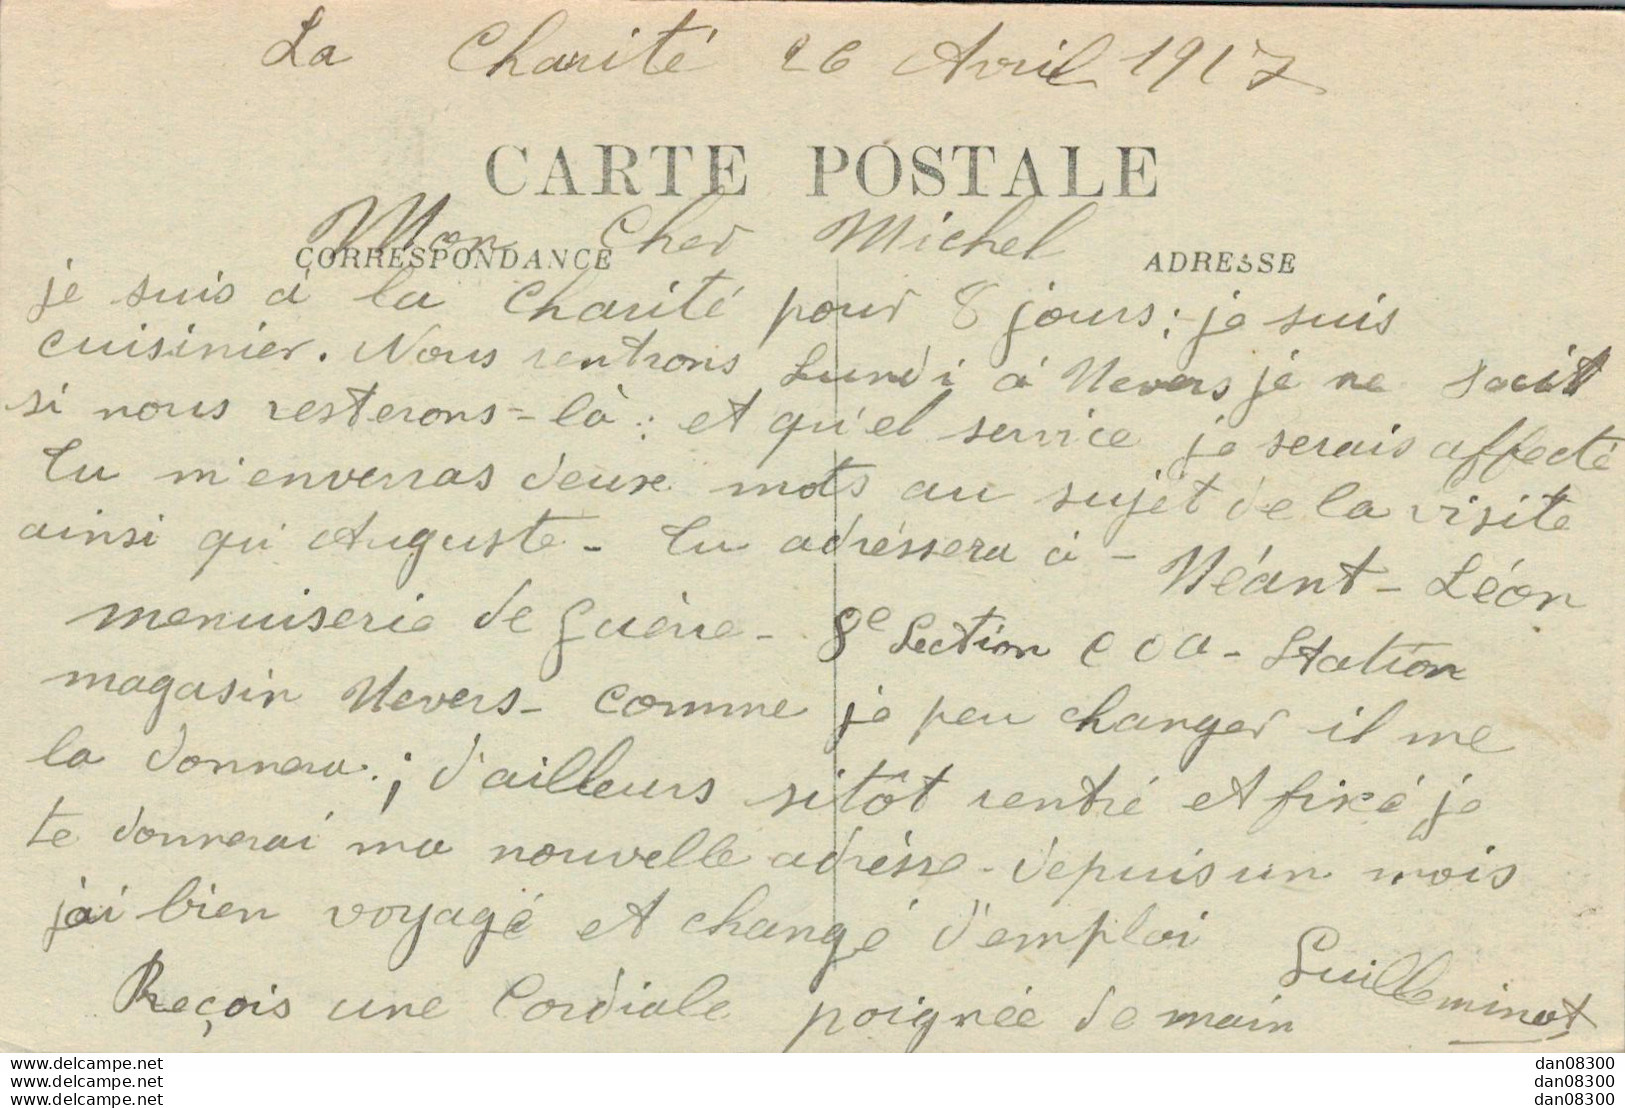 La Charité 26 Avril 1917
CARTE POSTALE
Mon Cher Michel
CORRESPONDANCE
ADRESSE
je suis à la Charité pour 8 jours ; je suis
cuisinier. Nous rentrons Lundi à Nevers je ne sait
si nous resterons-là : et qu'el service je serais affecté
Tu m'enverras deux mots au sujet de la visite
ainsi qu'Auguste - Tu adréssera à - Néant - Léon
menuiserie de Guère - 8e Section COA - Station
magasin Nevers - comme je peu changer il me
la donnera ; d'ailleurs sitôt rentré et fixé je
te donnerai ma nouvelle adrésse - depuis un mois
j'ai bien voyagé et changé d'emploi
Reçois une Cordiale poignée de main
Guilleminot
www.delcampe.net
www.delcampe.net
www.delcampe.net
dan08300
dan08300
dan08300